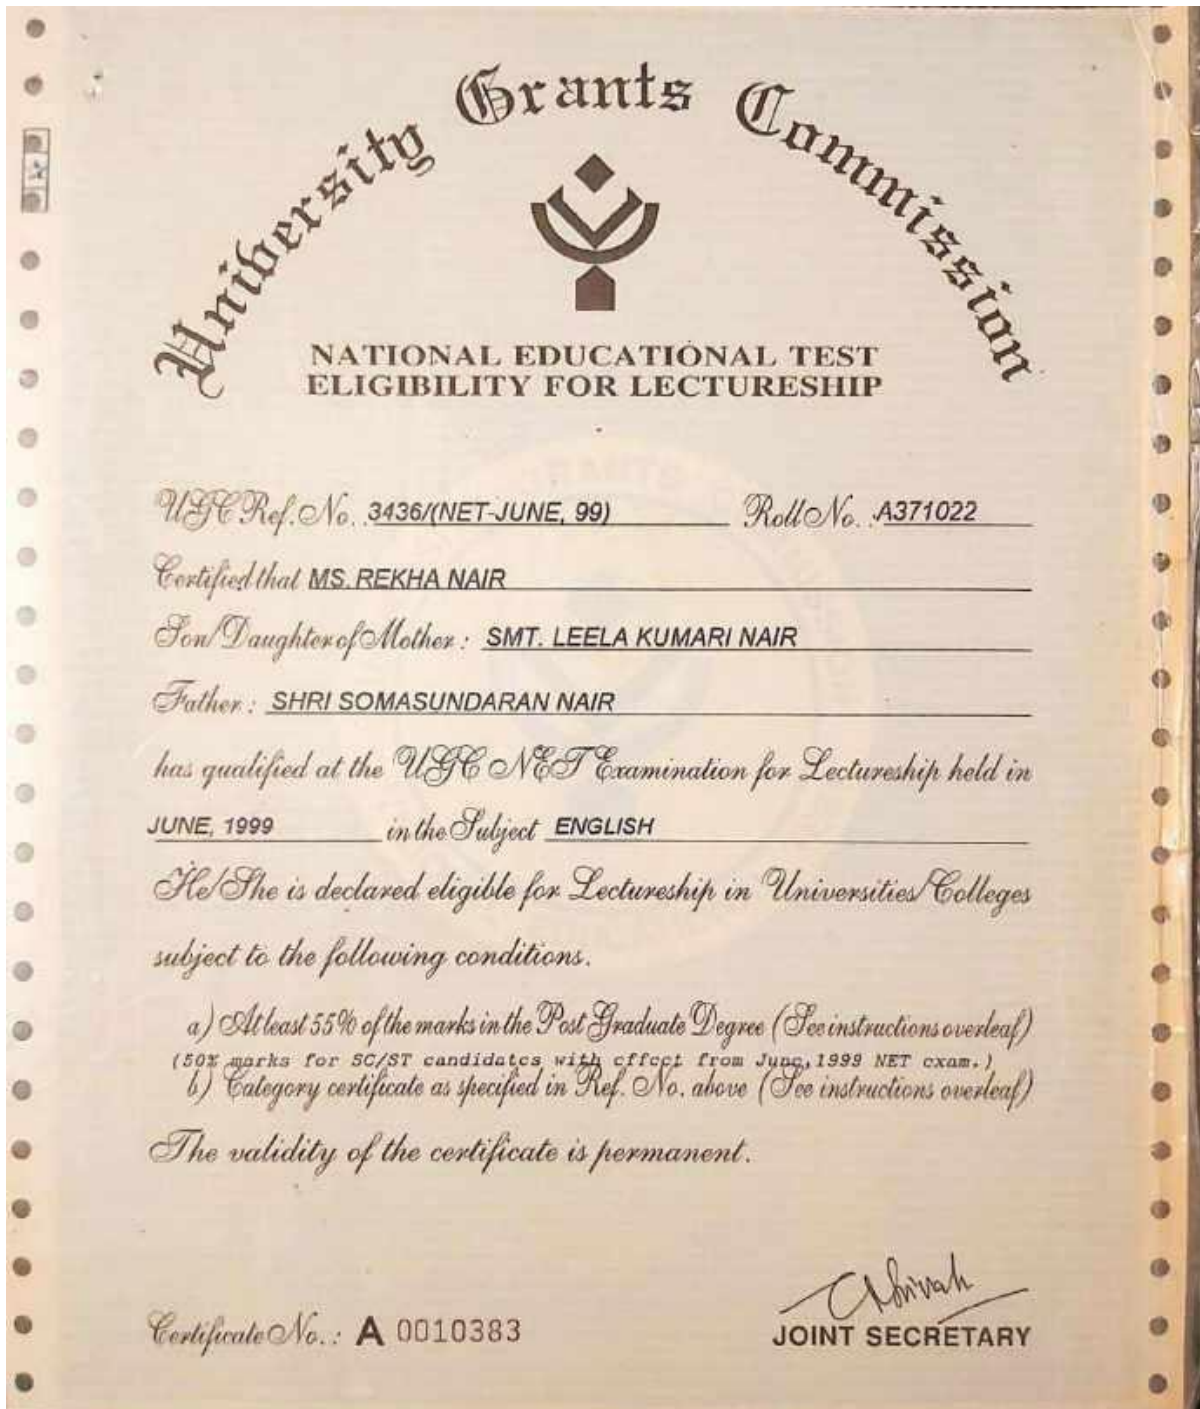 University Grants Commission
NATIONAL EDUCATIONAL TEST
ELIGIBILITY FOR LECTURESHIP
UGC Ref. No. 3436/(NET-JUNE, 99) Roll No. A371022
Certified that MS. REKHA NAIR
Son/Daughter of Mother : SMT. LEELA KUMARI NAIR
Father : SHRI SOMASUNDARAN NAIR
has qualified at the UGC NET Examination for Lectureship held in
JUNE, 1999 in the Subject ENGLISH
He/She is declared eligible for Lectureship in Universities/Colleges
subject to the following conditions.
a) At least 55% of the marks in the Post Graduate Degree (See instructions overleaf)
(50% marks for SC/ST candidates with effect from June,1999 NET exam.)
b) Category certificate as specified in Ref. No. above (See instructions overleaf)
The validity of the certificate is permanent.
Certificate No. : A 0010383
JOINT SECRETARY